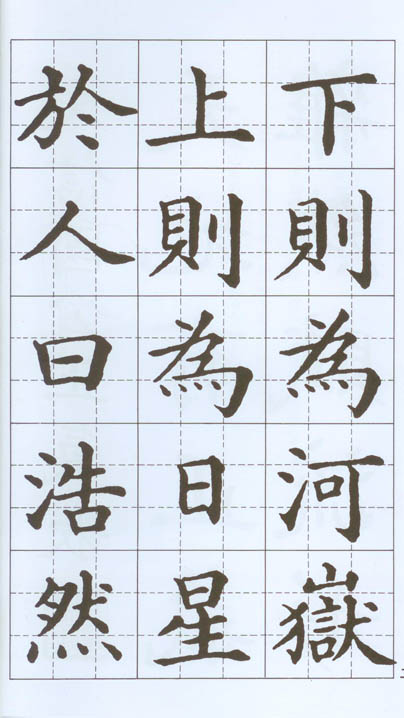 下則為河嶽
上則為日星
於人曰浩然